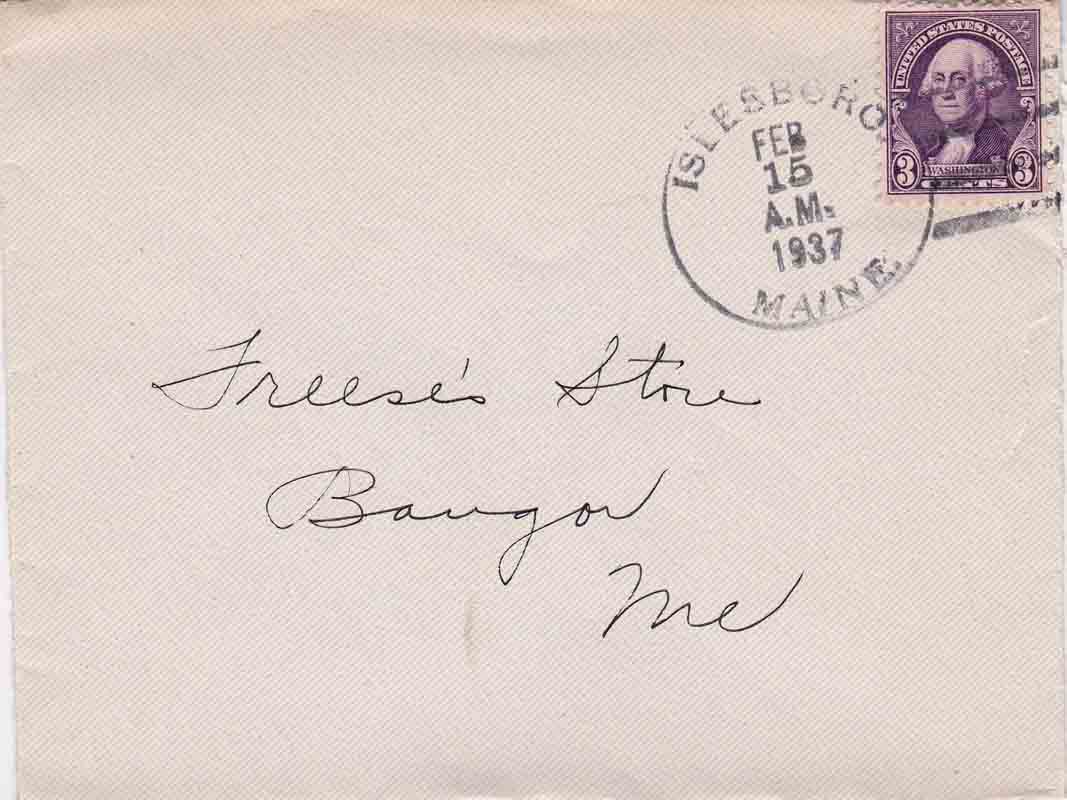 UNITED STATES POSTAGE
3 WASHINGTON 3
CENTS
ISLESBORO,
FEB
15
A.M.
1937
MAINE.
Freese's Store
Bangor
Me